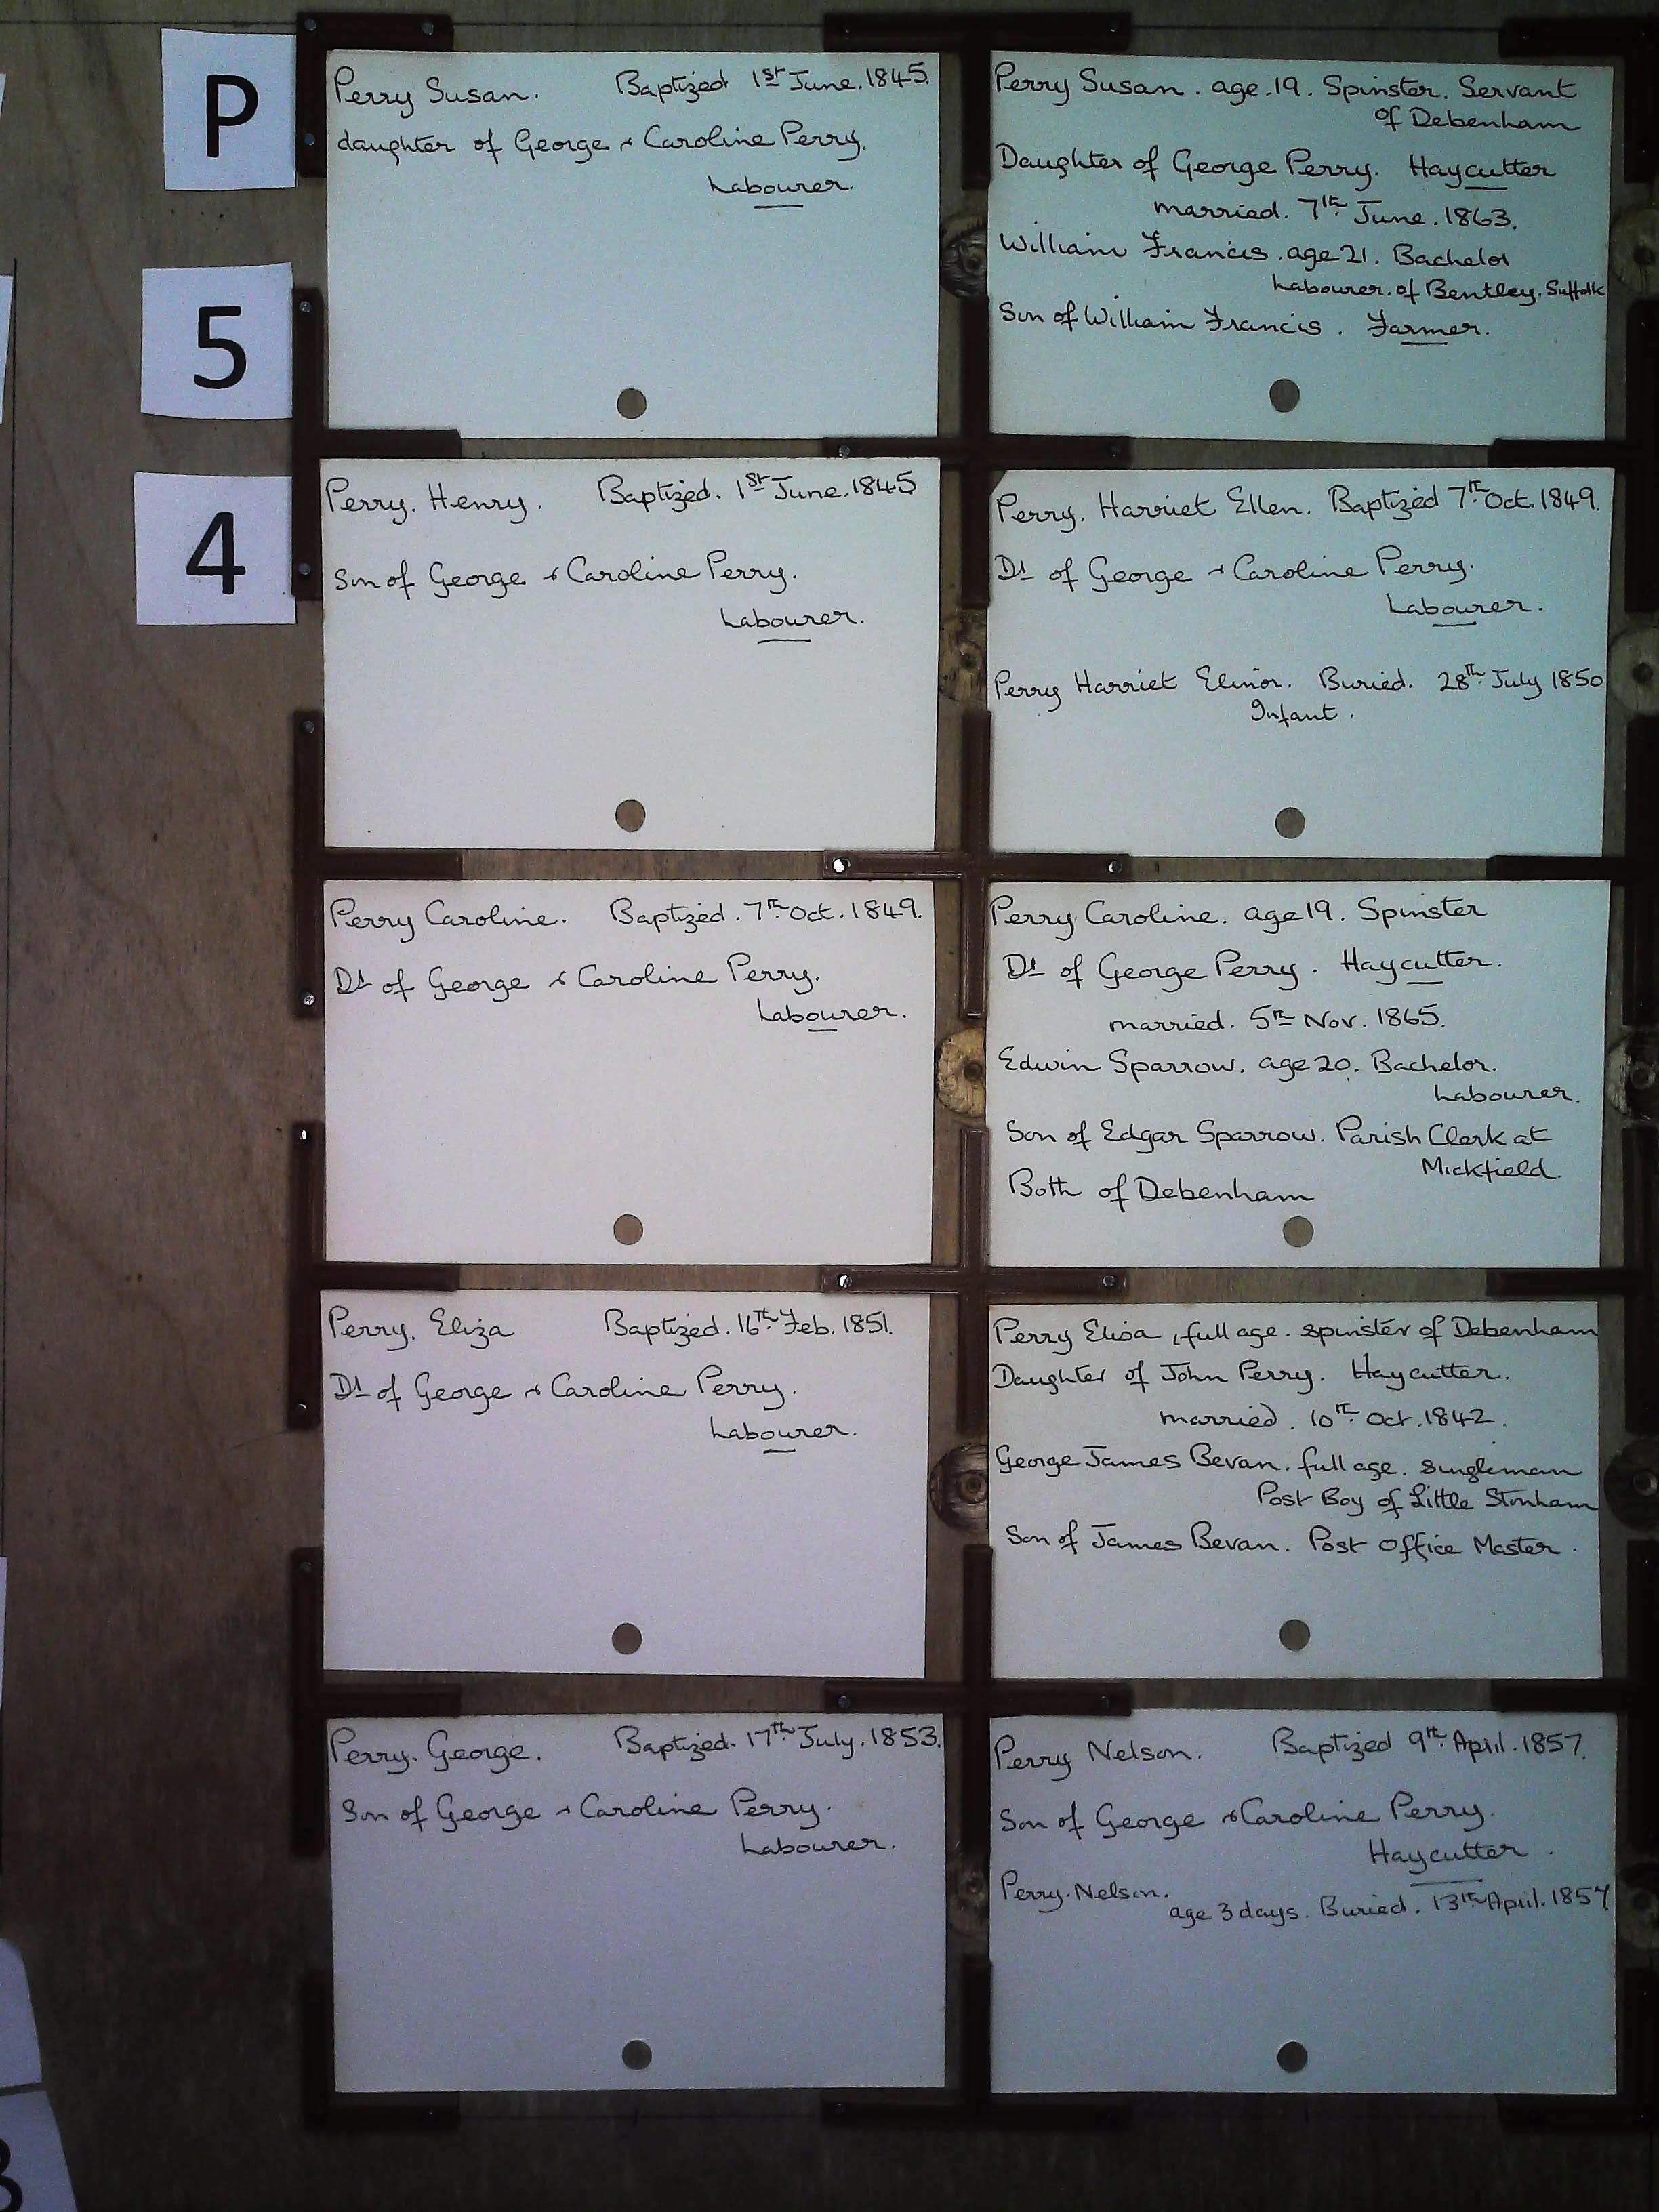 P
5
4
Perry Susan. Baptized 1st June. 1845.
daughter of George & Caroline Perry.
Labourer.
Perry Susan. age. 19. Spinster. Servant
of Debenham
Daughter of George Perry. Haycutter
married. 7th June. 1863.
William Francis. age 21. Bachelor
Labourer. of Bentley. Suffolk
Son of William Francis. Farmer.
Perry. Henry. Baptized. 1st June. 1845
Son of George & Caroline Perry.
Labourer.
Perry. Harriet Ellen. Baptized 7th Oct. 1849.
Dr of George & Caroline Perry.
Labourer.
Perry Harriet Elinor. Buried. 28th July 1850
Infant.
Perry Caroline. Baptized. 7th Oct. 1849.
Dr of George & Caroline Perry.
Labourer.
Perry Caroline. age 19. Spinster
Dr of George Perry. Haycutter.
married. 5th Nov. 1865.
Edwin Sparrow. age 20. Bachelor.
Labourer.
Son of Edgar Sparrow. Parish Clerk at
Mickfield.
Both of Debenham
Perry. Eliza Baptized. 16th Feb. 1851.
Dr of George & Caroline Perry.
Labourer.
Perry Elisa, full age. spinster of Debenham
Daughter of John Perry. Haycutter.
married. 10th Oct. 1842.
George James Bevan. full age. singleman
Post Boy of Little Stonham
Son of James Bevan. Post Office Master.
Perry. George. Baptized. 17th July. 1853.
Son of George & Caroline Perry.
Labourer.
Perry Nelson. Baptized 9th April. 1857.
Son of George & Caroline Perry.
Haycutter.
Perry. Nelson.
age 3 days. Buried. 13th April. 1857